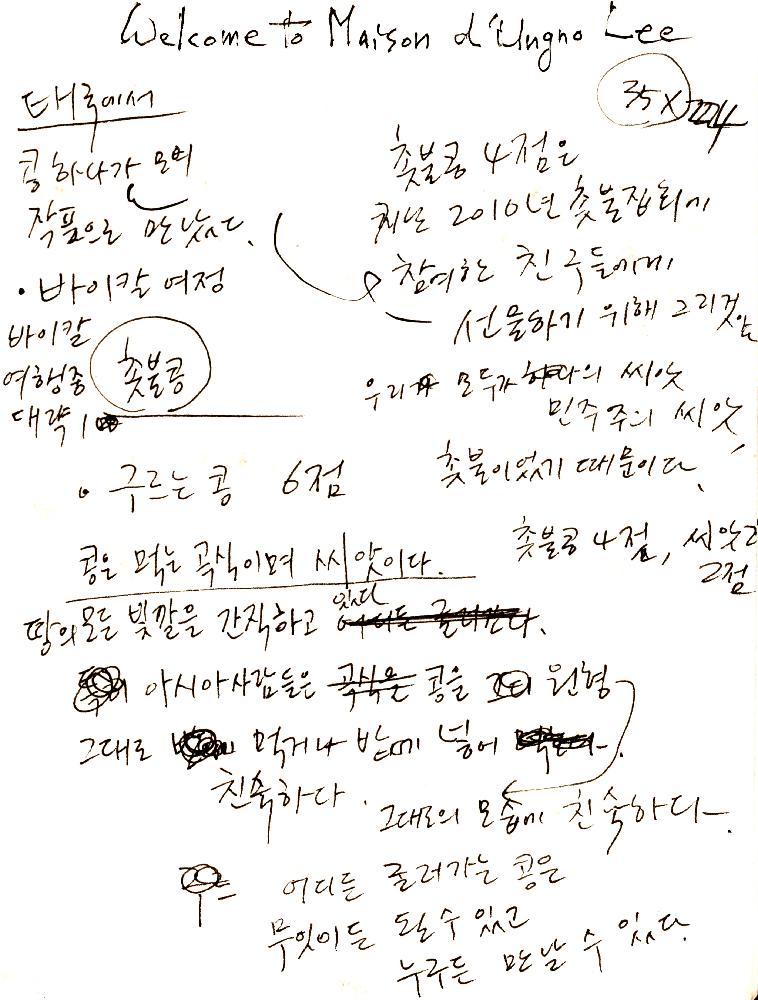 Welcome to Maison d'Ungno Lee
35 X
태국에서
콩 하나가 모여
작품으로 만났다.
• 바이칼 여정
바이칼
여행중 촛불콩
대략 1
촛불콩 4점은
지난 2010년 촛불집회에
참여한 친구들에게
선물하기 위해 그린것
우리 모두가 하나의 씨앗
민주주의 씨앗,
촛불이었기 때문이다.
촛불콩 4점, 씨앗
2점
• 구르는 콩 6점
콩은 먹는 곡식이며 씨앗이다.
땅의 모든 빛깔을 간직하고 있다.
아시아사람들은 곡식을 콩을 원형
그대로 먹거나 밥에 넣어
친숙하다.
그대로의 모습에 친숙하다.
어디든 굴러가는 콩은
무엇이든 될 수 있고
누구든 만날 수 있다.